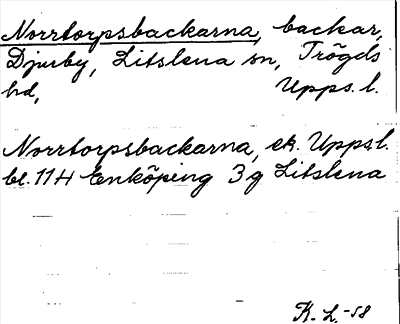 Norrtorpsbackarna, backar,
Djurby, Litslena sn, Trögds
hd, Upps. l.
Norrtorpsbackarna, ek. Upps.l.
bl. 114 Enköping 3g Litslena
K. L. -58